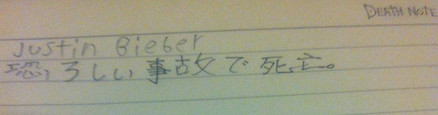 DEATH NOTE
Justin Bieber
恐ろしい事故で死亡。